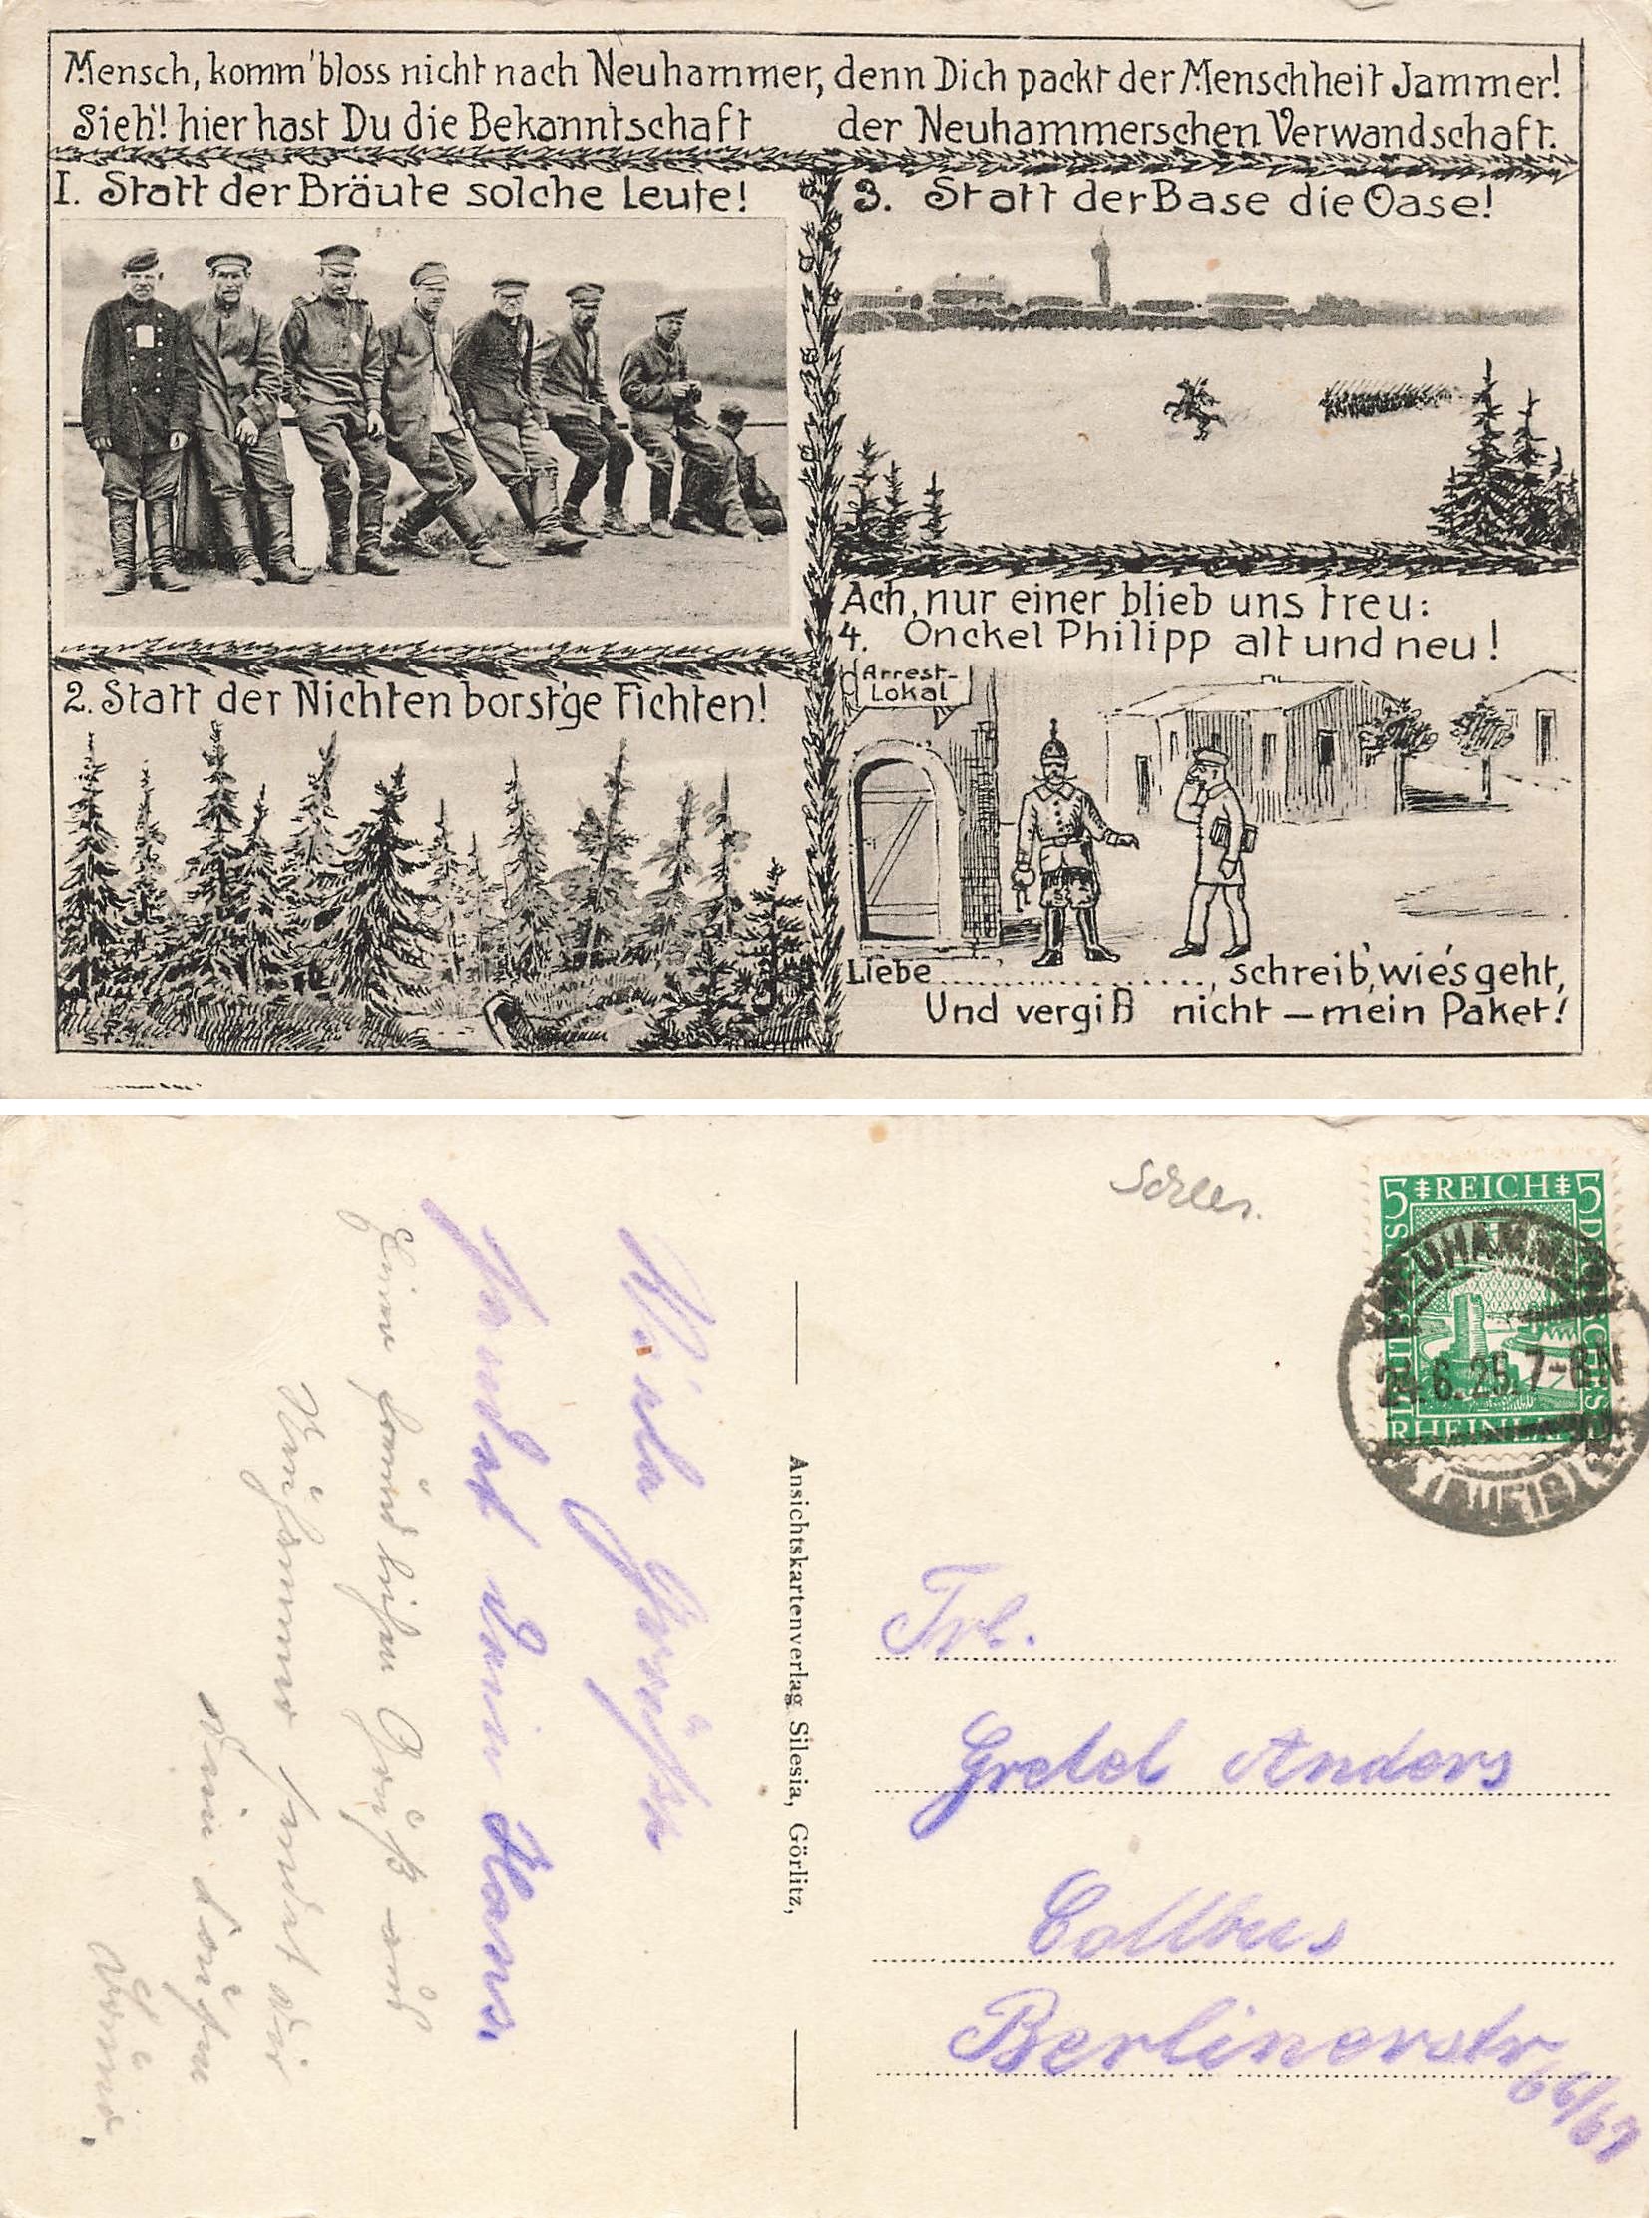 Mensch, komm' bloss nicht nach Neuhammer, denn Dich packt der Menschheit Jammer!
Sieh'! hier hast Du die Bekanntschaft der Neuhammerschen Verwandschaft.
1. Statt der Bräute solche Leute!
2. Statt der Nichten borst'ge Fichten!
3. Statt der Base die Oase!
Ach, nur einer blieb uns treu:
4. Onckel Philipp alt und neu!
Arrest-
Lokal
Liebe.................., schreib', wie's geht,
Und vergiß nicht — mein Paket!
Schles.
5 REICH 5
DEUTSCHES
RHEINLAND
NEUHAMMER
24.6.25. 7-8N
Viele Grüße
sendet Dein Hans.
Einen freundlichen Gruß aus
Neuhammer sendet dir
Ansichtskartenverlag Silesia, Görlitz,
Frl.
Gretel Anders
Cottbus
Berlinerstr
66/67